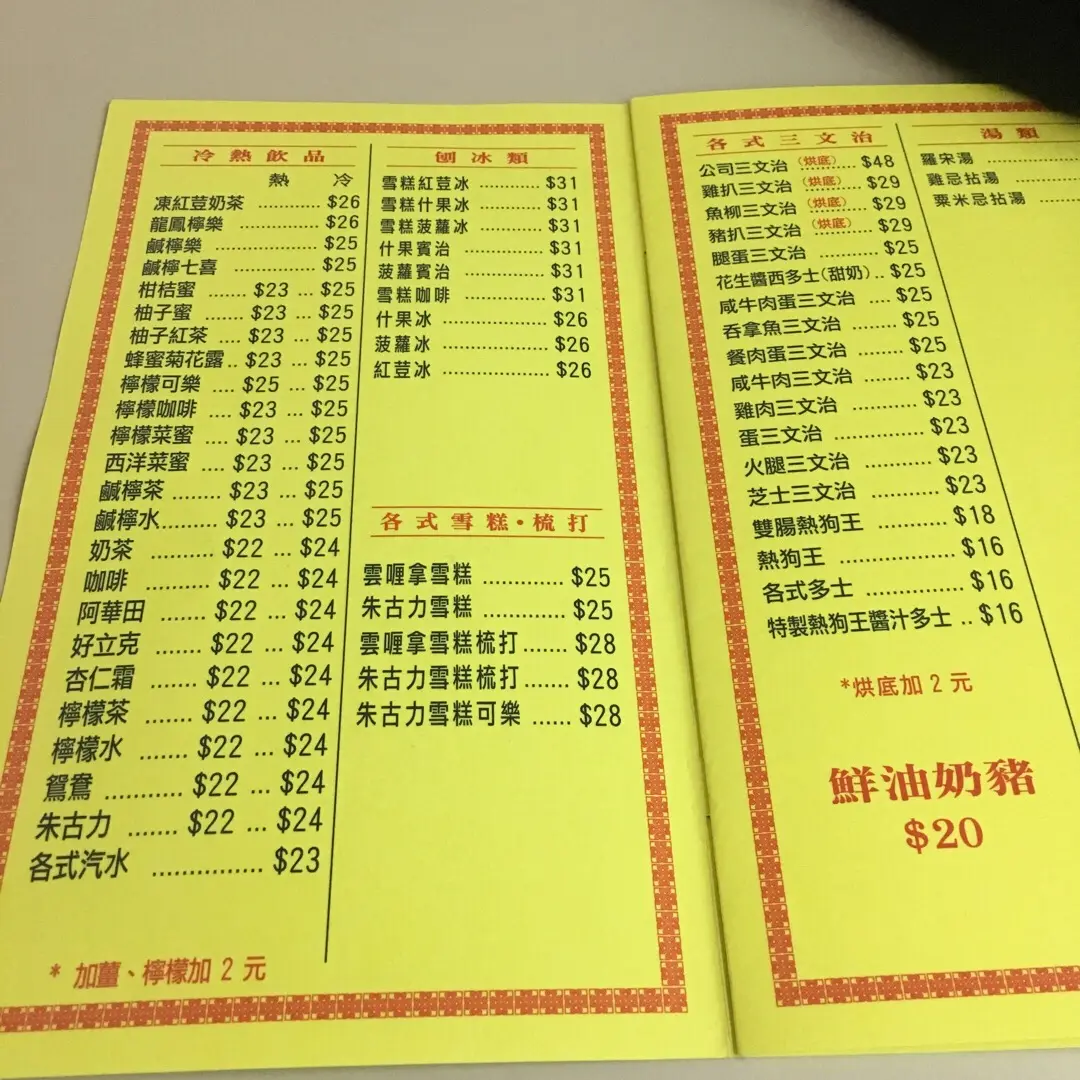 冷熱飲品
熱 冷
凍紅荳奶茶 ........ $26
龍鳳檸樂 ........ $26
鹹檸樂 ........ $25
鹹檸七喜 ........ $25
柑桔蜜 ...... $23 ... $25
柚子蜜 ...... $23 ... $25
柚子紅茶 .... $23 ... $25
蜂蜜菊花露.. $23 ... $25
檸檬可樂 .... $25 ... $25
檸檬咖啡 .... $23 ... $25
檸檬菜蜜 .... $23 ... $25
西洋菜蜜 .... $23 ... $25
鹹檸茶 ........ $23 ... $25
鹹檸水......... $23 ... $25
奶茶 .......... $22 ... $24
咖啡 .......... $22 ... $24
阿華田 ....... $22 ... $24
好立克 ....... $22 ... $24
杏仁霜 ....... $22 ... $24
檸檬茶 ....... $22 ... $24
檸檬水 ....... $22 ... $24
鴛鴦 ........... $22 ... $24
朱古力 ....... $22 ... $24
各式汽水 ................ $23
* 加薑、檸檬加 2 元
刨冰類
雪糕紅荳冰 ............ $31
雪糕什果冰 ............ $31
雪糕菠蘿冰 ............ $31
什果賓治 ................ $31
菠蘿賓治 ................ $31
雪糕咖啡 ................ $31
什果冰 .................... $26
菠蘿冰 .................... $26
紅荳冰 .................... $26
各式雪糕·梳打
雲喱拿雪糕 ............. $25
朱古力雪糕 ............. $25
雲喱拿雪糕梳打....... $28
朱古力雪糕梳打....... $28
朱古力雪糕可樂 ...... $28
各式三文治
公司三文治 (烘底) .... $48
雞扒三文治 (烘底) .... $29
魚柳三文治 (烘底) .... $29
豬扒三文治 (烘底) .... $29
腿蛋三文治 ........... $25
花生醬西多士(甜奶).. $25
咸牛肉蛋三文治 .... $25
吞拿魚三文治 ....... $25
餐肉蛋三文治 ....... $25
咸牛肉三文治 ........ $23
雞肉三文治 ........... $23
蛋三文治 .............. $23
火腿三文治 ........... $23
芝士三文治 ........... $23
雙腸熱狗王 ........... $18
熱狗王 .................. $16
各式多士 .............. $16
特製熱狗王醬汁多士 .. $16
*烘底加 2 元
鮮油奶豬
$20
湯類
羅宋湯 ................
雞忌拈湯 ............
粟米忌拈湯 .........